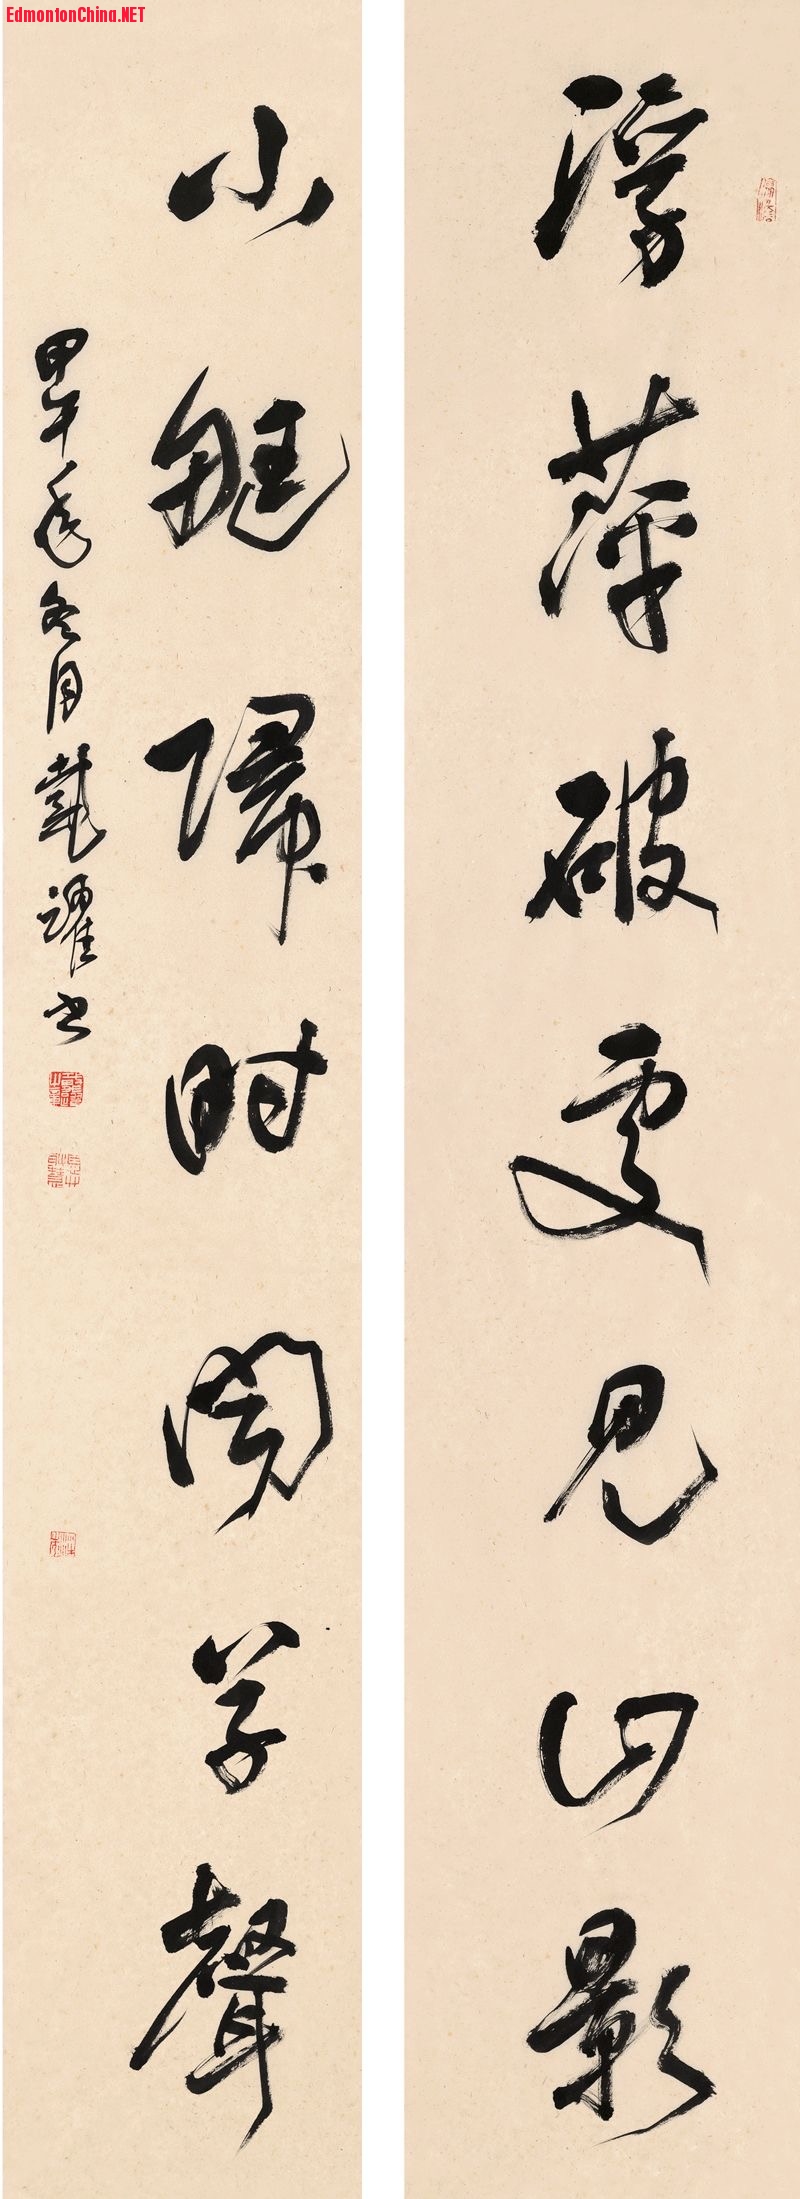 EdmontonChina.NET
浮萍破處見山影
小艇歸時聞草聲
甲午年冬月戴躍书